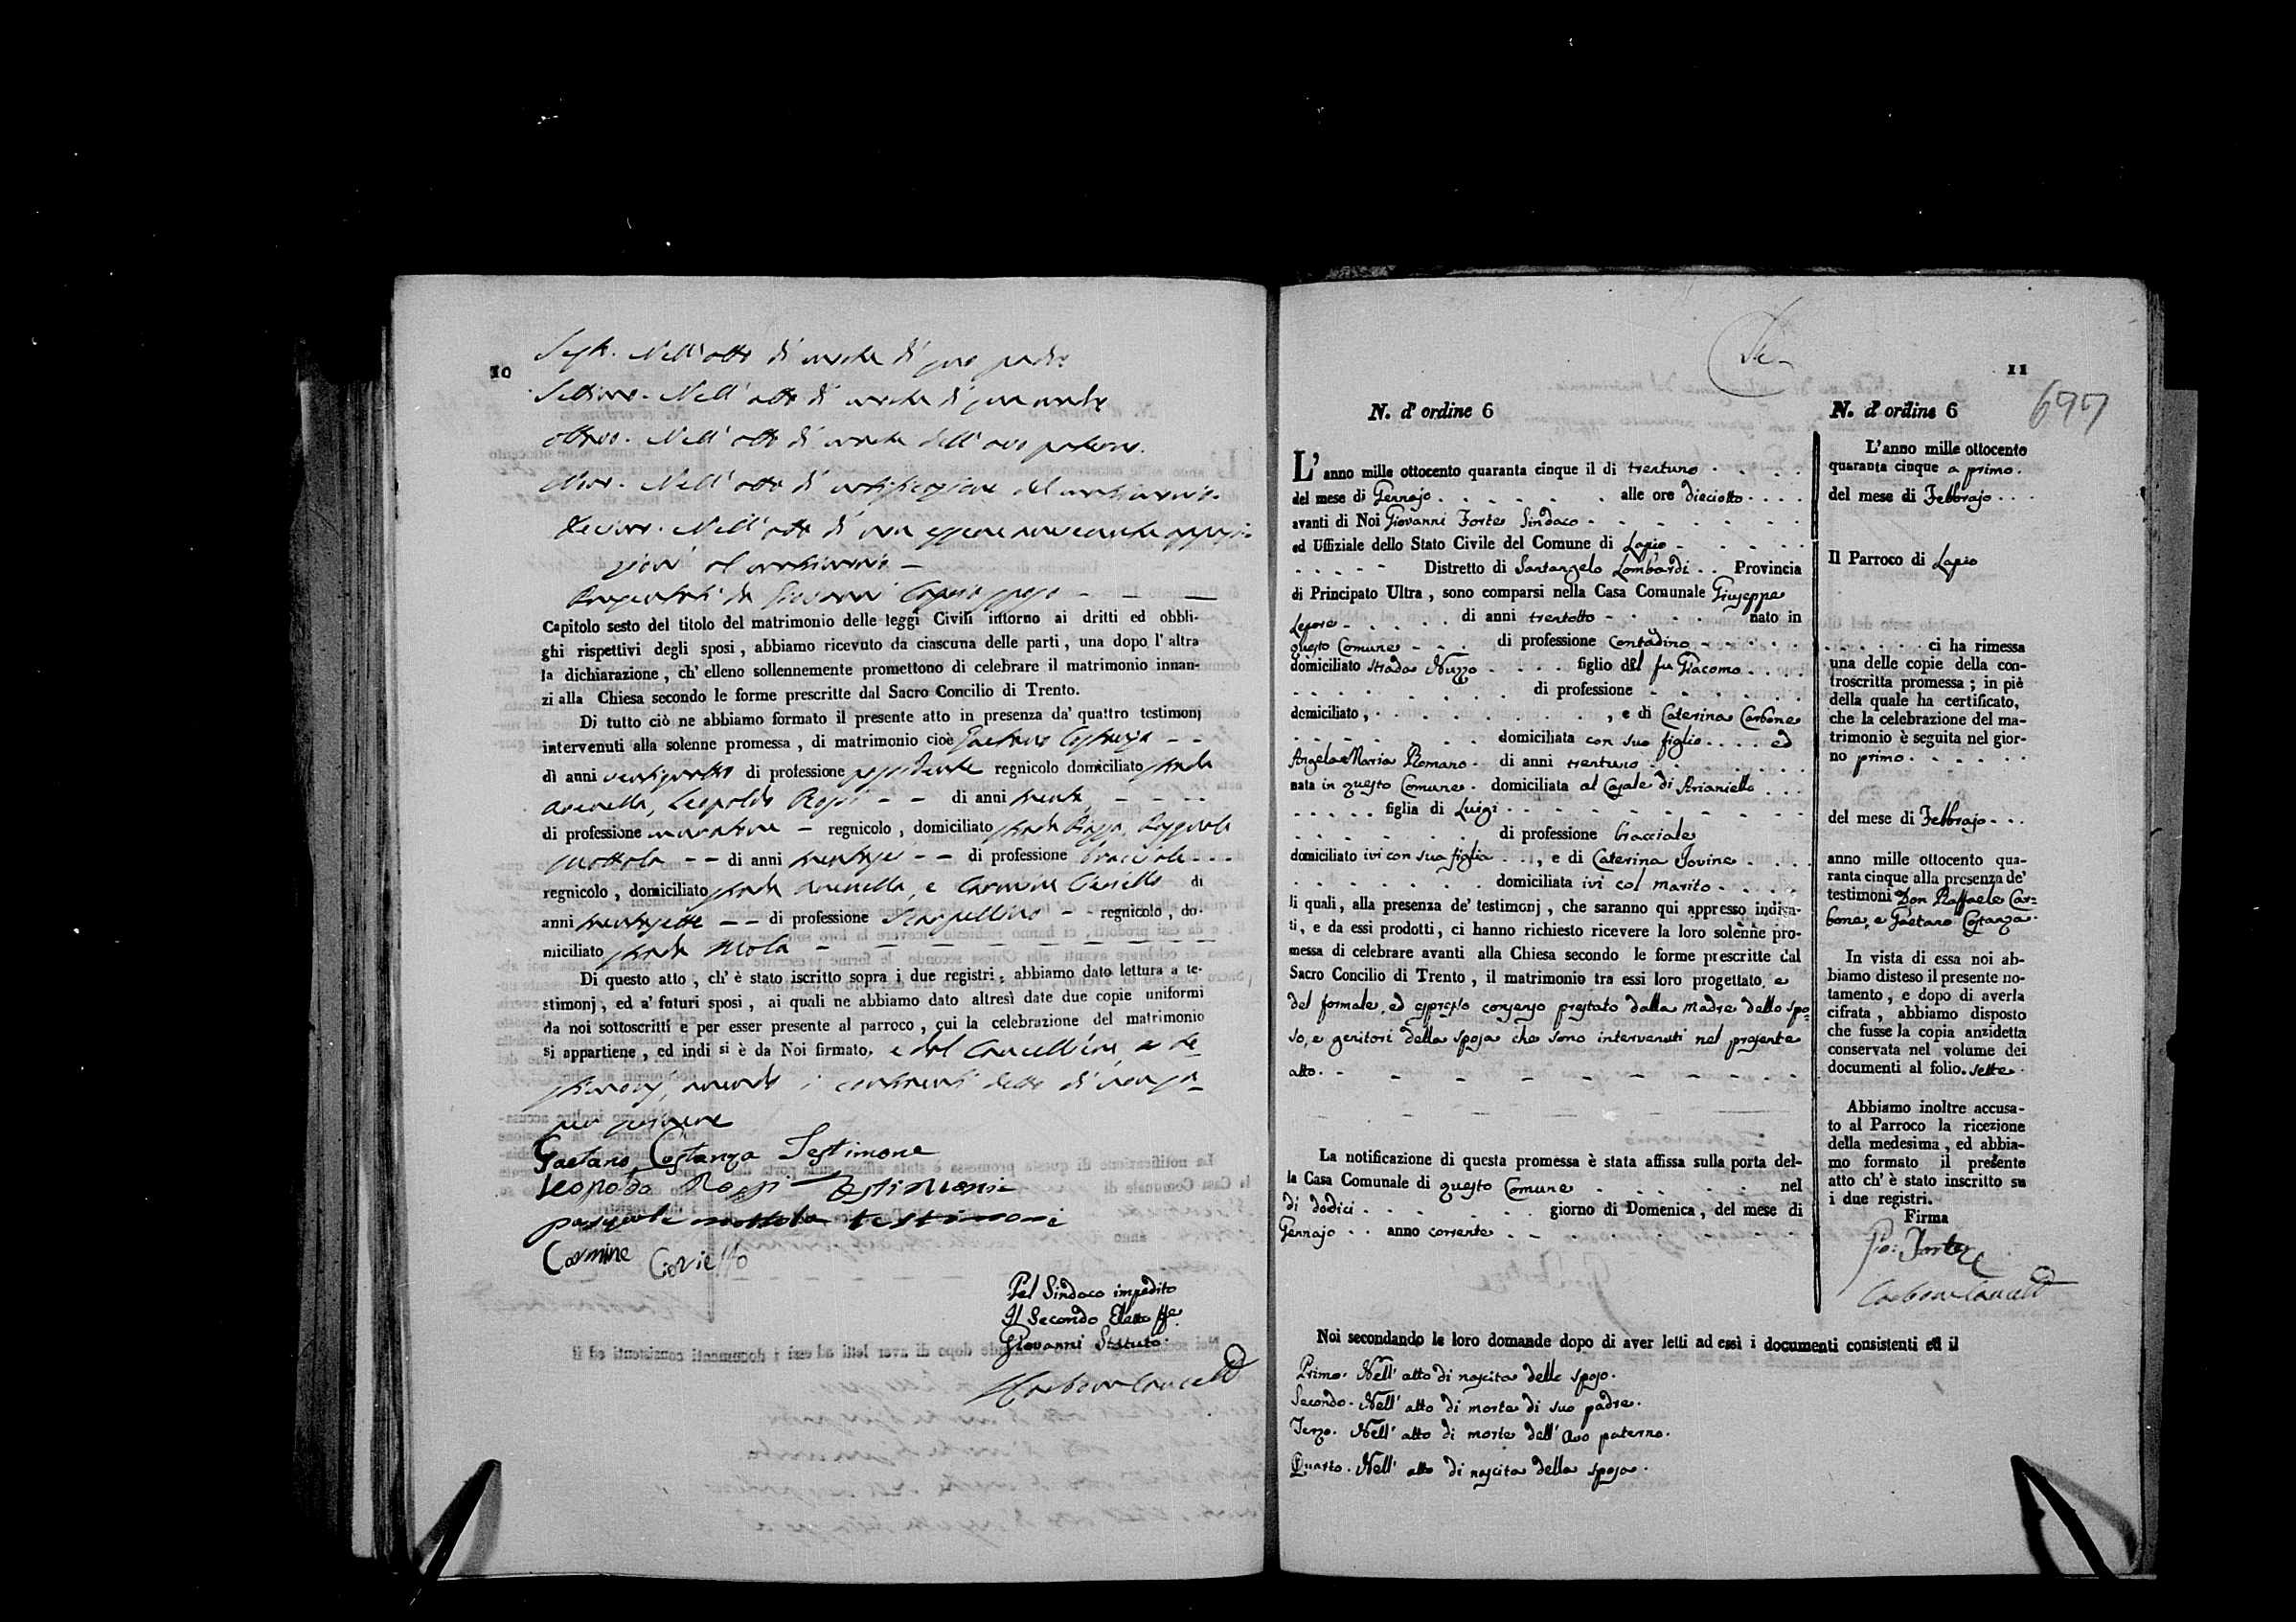 10
Sesto. Nell' atto di morte di suo padre
Settimo. Nell' atto di morte di sua madre
Ottavo. Nell' atto di morte dell' avo paterno.
Nono. Nell' atto di notificazione del matrimonio.
Decimo. Nell' atto di non essere
al matrimonio —
da Giovanni
Capitolo sesto del titolo del matrimonio delle leggi Civili intorno ai dritti ed obbli-
ghi rispettivi degli sposi, abbiamo ricevuto da ciascuna delle parti, una dopo l' altra
la dichiarazione, ch' elleno sollennemente promettono di celebrare il matrimonio innan-
zi alla Chiesa secondo le forme prescritte dal Sacro Concilio di Trento.
Di tutto ciò ne abbiamo formato il presente atto in presenza da' quattro testimonj
intervenuti alla solenne promessa, di matrimonio cioè Gaetano Costanza - -
di anni ventiquattro di professione possidente regnicolo domiciliato strada
Leopoldo Rossi - - di anni trenta - - -
di professione muratore - regnicolo, domiciliato strada Piazza, Pasquale
Mottola - - di anni trentasei - - di professione bracciale - - -
regnicolo, domiciliato strada e Carmine Ciriello di
anni trentasette - - di professione Scarpellino - - regnicolo, do-
miciliato strada Mola - - - - - - - -
Di questo atto, ch' è stato iscritto sopra i due registri, abbiamo dato lettura a te-
stimonj, ed a' futuri sposi, ai quali ne abbiamo dato altresì date due copie uniformi
da noi sottoscritti e per esser presente al parroco, cui la celebrazione del matrimonio
si appartiene, ed indi si è da Noi firmato, e dal Cancelliere, e te-
stimonj, avendo i contraenti detto di non sa-
per scrivere
Gaetano Costanza Testimone
Leopoldo Rossi testimonio
pasquale mottola testimone
Carmine Ciriello
Pel Sindaco impedito
Il Secondo Eletto ffe.
Giovanni Statuto.
11
697
N. d' ordine 6
L' anno mille ottocento quaranta cinque il di trentuno . . . .
del mese di Gennajo . . . . . . alle ore dieciotto . . . .
avanti di Noi Giovanni Forte Sindaco - - - - - - -
ed Uffiziale dello Stato Civile del Comune di Lapio - - - -
- - - - - Distretto di Santangelo Lombardi . . Provincia
di Principato Ultra, sono comparsi nella Casa Comunale Giuseppe
Lepore - . . . . di anni trentotto - - . . . nato in
questo Comune - - . di professione Contadino - - - - .
domiciliato strada Nuzzo - . . . figlio del fu Giacomo . . . .
. . . . . . . . . di professione - . . . . .
domiciliato, . . . . . . . . . , e di Caterina Carbone
. . . . . . . . domiciliata con suo figlio . . . . ed
Angela Maria Romano . di anni trentuno . . . . . .
nata in questo Comune . domiciliata al Casale di Arianiello . . .
. . . . . figlia di Luigi . . - - - - - - -
- - . . . . . di professione bracciale
domiciliato ivi con sua figlia . . . , e di Caterina Iovine . . . .
. . . . . . . domiciliata ivi col marito . . . . .
li quali, alla presenza de' testimonj, che saranno qui appresso indica-
ti, e da essi prodotti, ci hanno richiesto ricevere la loro solenne pro-
messa di celebrare avanti alla Chiesa secondo le forme prescritte dal
Sacro Concilio di Trento, il matrimonio tra essi loro progettato, e
del formale, ed espresso consenso prestato dalla madre dello spo-
so, e genitori della sposa che sono intervenuti nel presente
atto. - - - - - - - - - -
La notificazione di questa promessa è stata affissa sulla porta del-
la Casa Comunale di questo Comune . . . . . . nel
di dodici . . . . . . . giorno di Domenica, del mese di
Gennajo . . anno corrente . . - - - - - -
N. d' ordine 6
L'anno mille ottocento
quaranta cinque a primo .
del mese di Febbrajo . . .
Il Parroco di Lapio
. . . . . . ci ha rimessa
una delle copie della con-
troscritta promessa; in piè
della quale ha certificato,
che la celebrazione del ma-
trimonio è seguita nel gior-
no primo . . . . . .
del mese di Febbrajo - . .
anno mille ottocento qua-
ranta cinque alla presenza de'
testimoni Don Raffaele Car-
bone, e Gaetano Costanza.
In vista di essa noi ab-
biamo disteso il presente no-
tamento, e dopo di averla
cifrata, abbiamo disposto
che fusse la copia anzidetta
conservata nel volume dei
documenti al folio. sette .
Abbiamo inoltre accusa-
to al Parroco la ricezione
della medesima, ed abbia-
mo formato il presente
atto ch' è stato inscritto su
i due registri.
Firma
Gio: Forte
Noi secondando le loro domande dopo di aver letti ad essi i documenti consistenti ed il
Primo. Nell' atto di nascita dello sposo.
Secondo. Nell' atto di morte di suo padre.
Terzo. Nell' atto di morte dell' avo paterno.
Quarto. Nell' atto di nascita della sposa.